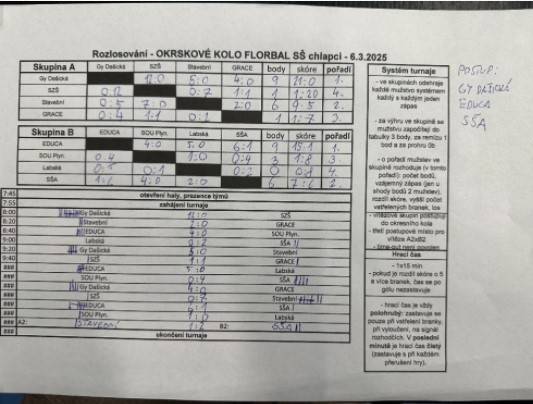 Rozlosování - OKRSKOVÉ KOLO FLORBAL SŠ chlapci - 6.3.2025
Skupina A Gy Dašická SZŠ Stavební GRACE body skóre pořadí
Gy Dašická 12:0 5:0 4:0 9 21:0 1.
SZŠ 0:12 0:7 1:1 1 1:20 4.
Stavební 0:5 7:0 2:0 6 9:5 2.
GRACE 0:4 1:1 0:2 1 1:7 3.
Skupina B EDUCA SOU Plyn. Labská SŠA body skóre pořadí
EDUCA 4:0 5:0 6:1 9 15:1 1.
SOU Plyn. 0:4 1:0 0:4 3 1:8 3.
Labská 0:5 0:1 0:2 0 0:8 4.
SŠA 1:6 4:0 2:0 6 7:6 2.
7:45 otevření haly, prezence týmů
7:55 zahájení turnaje
8:00 Gy Dašická 12:0 SZŠ
8:20 Stavební 2:0 GRACE
8:40 EDUCA 4:0 SOU Plyn.
9:00 Labská 0:2 SŠA
9:20 Gy Dašická 5:0 Stavební
9:40 SZŠ 1:1 GRACE
### EDUCA 5:0 Labská
### SOU Plyn. 0:4 SŠA
### Gy Dašická 4:0 GRACE
### SZŠ 0:7 Stavební
### EDUCA 6:1 SŠA
### SOU Plyn. 1:0 Labská
### A2: STAVEBNÍ 1:2 B2: SŠA
### ukončení turnaje
Systém turnaje
- ve skupinách odehraje
každé mužstvo systémem
každý s každým jeden
zápas
- za výhru ve skupině se
mužstvu započítají do
tabulky 3 body, za remízu 1
bod a za prohru 0b
- o pořadí mužstev ve
skupině rozhoduje (v tomto
pořadí): počet bodů,
vzájemný zápas (jen u
shody bodů 2 mužstev),
rozdíl skóre, vyšší počet
vstřelených branek, los
- vítězové skupin postupují
do okresního kola
- třetí postupové místo pro
vítěze A2xB2
- time-out není povolen
Hrací čas
- 1x15 min
- pokud je rozdíl skóre o 5
a více branek, čas se po
gólu nezastavuje
- hrací čas je vždy
polohrubý: zastavuje se
pouze při vstřelení branky,
při vyloučení, na signál
rozhodčích. V poslední
minutě je hrací čas čistý
(zastavuje s při každém
přerušení hry).
POSTUP:
GY DAŠICKÁ
EDUCA
SŠA